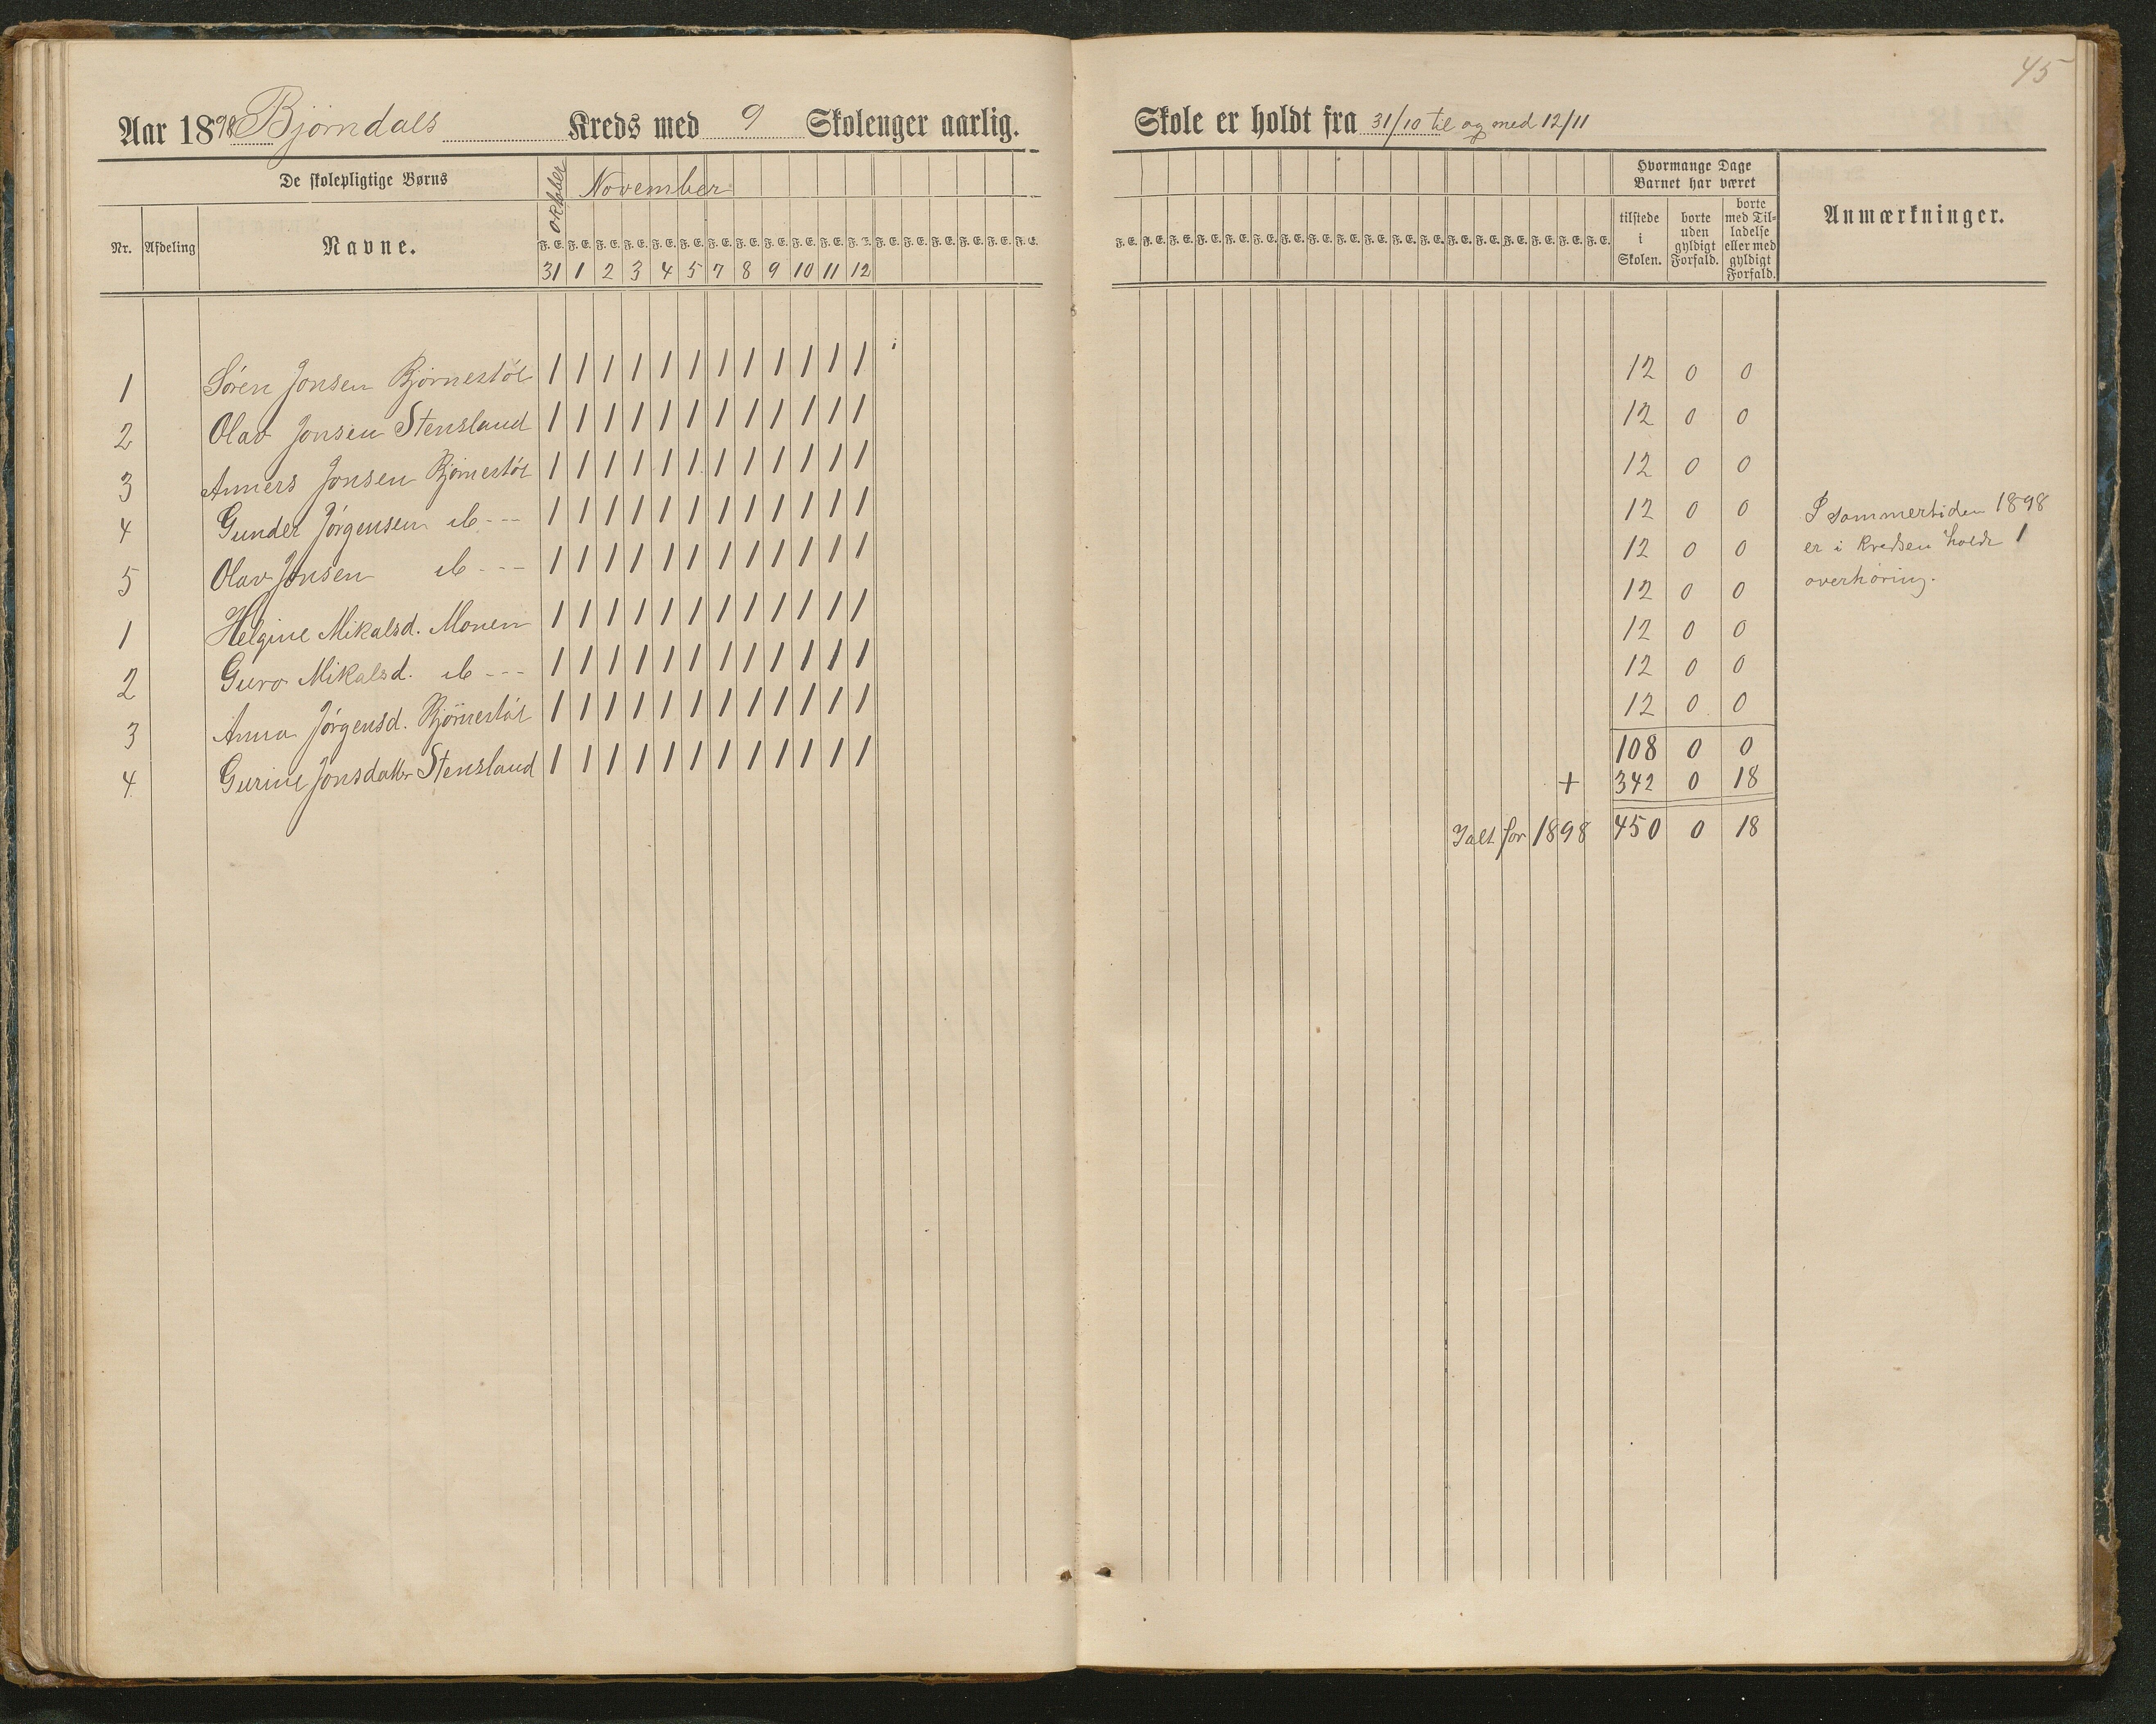 45
Aar 1898 Bjørndals Kreds med 9 Skolenger aarlig.
Skole er holdt fra 31/10 til og med 12/11
De skolepligtige Børns
Oktober
November
Nr. Afdeling Navne.
F. E. F. E. F. E. F. E. F. E. F. E. F. E. F. E. F. E. F. E. F. E. F. E. F. E. F. E. F. E. F. E. F. E. F. E.
31 1 2 3 4 5 7 8 9 10 11 12
F. E. F. E. F. E. F. E. F. E. F. E. F. E. F. E. F. E. F. E. F. E. F. E. F. E. F. E. F. E. F. E. F. E. F. E.
Hvormange Dage
Barnet har været
tilstede
i
Skolen.
borte
uden
gyldigt
Forfald.
borte
med Til-
ladelse
eller med
gyldigt
Forfald.
Anmærkninger.
1 Sören Jonsen Bjørnestøl 1 1 1 1 1 1 1 1 1 1 1 1 12 0 0
2 Olav Jonsen Stensland 1 1 1 1 1 1 1 1 1 1 1 1 12 0 0
3 Anners Jonsen Bjørnestøl 1 1 1 1 1 1 1 1 1 1 1 1 12 0 0
4 Gunder Jörgensen ib --- 1 1 1 1 1 1 1 1 1 1 1 1 12 0 0
5 Olav Jonsen ib --- 1 1 1 1 1 1 1 1 1 1 1 1 12 0 0
1 Helgine Mikalsd. Monen 1 1 1 1 1 1 1 1 1 1 1 1 12 0 0
2 Guro Mikalsd. ib --- 1 1 1 1 1 1 1 1 1 1 1 1 12 0 0
3 Anna Jörgensd. Bjørnestøl 1 1 1 1 1 1 1 1 1 1 1 1 12 0 0
4 Gurine Jonsdatter Stensland 1 1 1 1 1 1 1 1 1 1 1 1 12 0 0
108 0 0
+ 342 0 18
Ialt for 1898 450 0 18
I sommertiden 1898
er i kredsen holdt 1
overhøring.